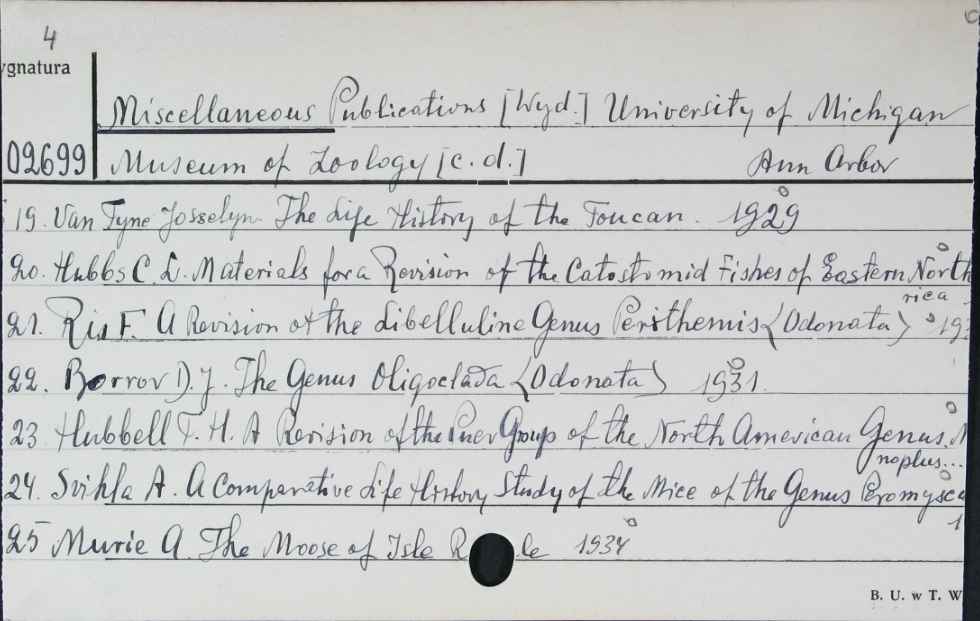 4
ygnatura
Miscellaneous Publications [Wyd.] University of Michigan
02699 Museum of Zoology [c.d.] Ann Arbor
19. Van Tyne Josselyn The Life History of the Toucan. 1929
20. Hubbs C. L. Materials for a Revision of the Catostomid Fishes of Eastern North
rica
21. Ris F. A Revision of the Libelluline Genus Perithemis (Odonata) 19
22. Borror D. J. The Genus Oligoclada (Odonata) 1931.
23 Hubbell T. H. A Revision of the Puer Group of the North American Genus
noplus...
24. Svihla A. A Comparative Life History Study of the Mice of the Genus Peromysc
1
25 Murie A. The Moose of Isle R le 1934
B. U. w T. W